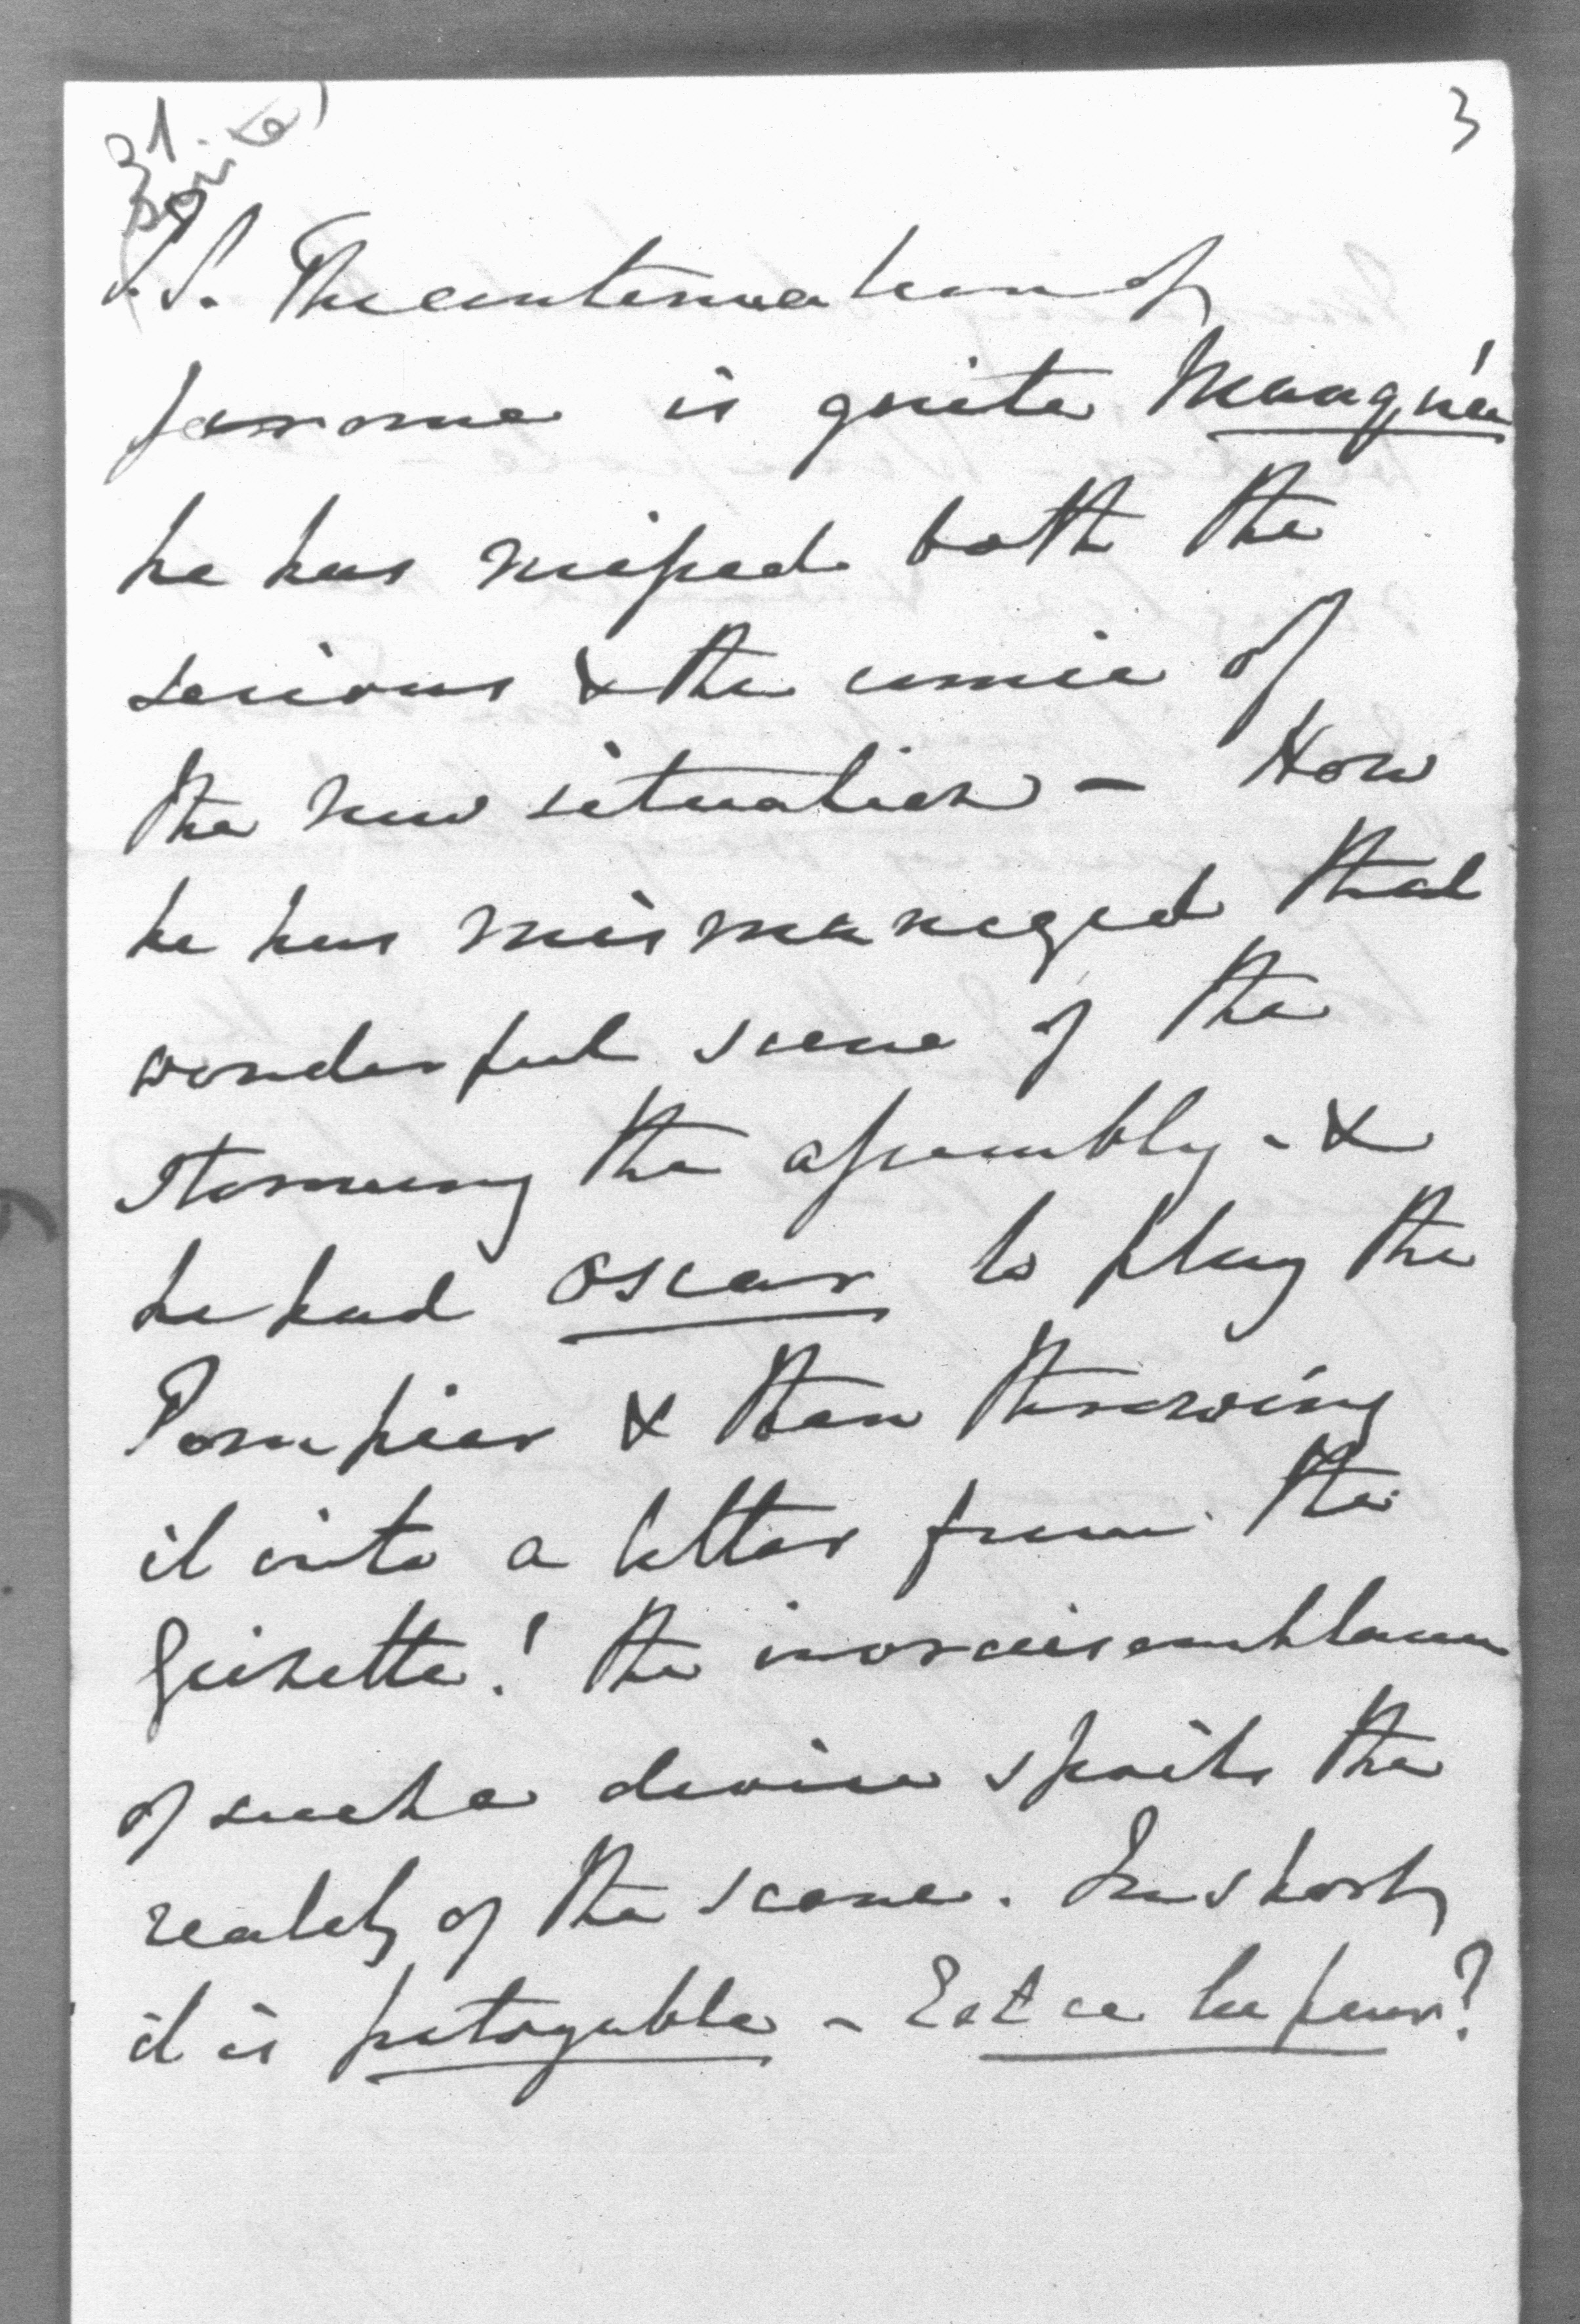 31.
(Suite)
3
P.S. The continuation of
Jerome is quite Manquée
he has missed both the
serious & the comic of
the new situation – How
he has mismanaged that
wonderful scene of the
storming the assembly - &
he had Oscar to play the
Pompier & then throwing
it into a letter from the
Grisette! the invraisemblance
of such a device spoils the
reality of the scene. In short
it is pitoyable - Est ce la peur?